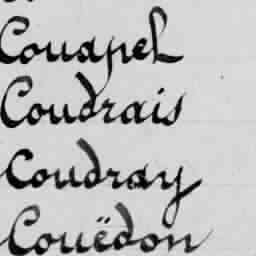 Couapel
Coudrais
Coudray
Couëdon